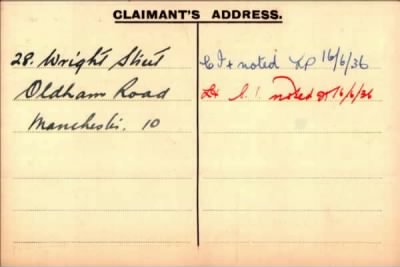 CLAIMANT'S ADDRESS.
28. Wright Street
Oldham Road
Manchester. 10
noted 16/6/36
noted 16/6/36